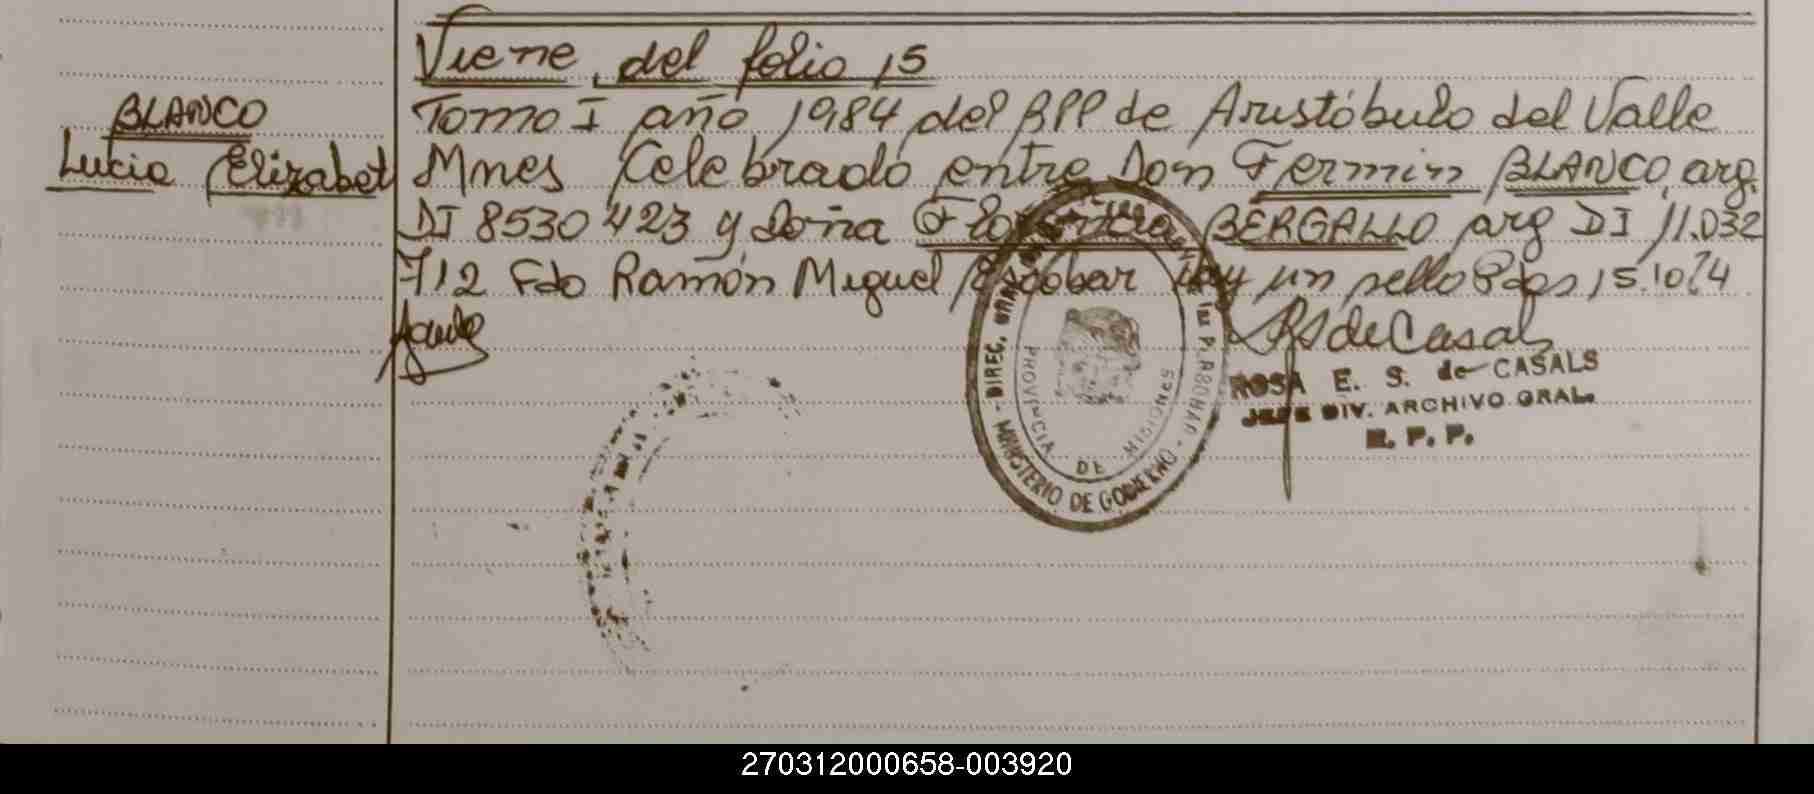 Viene del folio 15
BLANCO
Lucia Elizabet
Tomo I año 1984 del RPP de Aristóbulo del Valle
Mnes Celebrado entre Don Fermin BLANCO, arg.
DI 8530 423 y doña BERGALLO arg DI 11.032
712 Fdo Ramón Miguel Escobar Hay un sello Pdas 15.10.
RS de Casals
ROSA E. S. de CASALS
JEFE DIV. ARCHIVO GRAL.
R. P. P.
DIREC. GRAL.
MINISTERIO DE GOBIERNO
PROVINCIA DE MISIONES
270312000658-003920